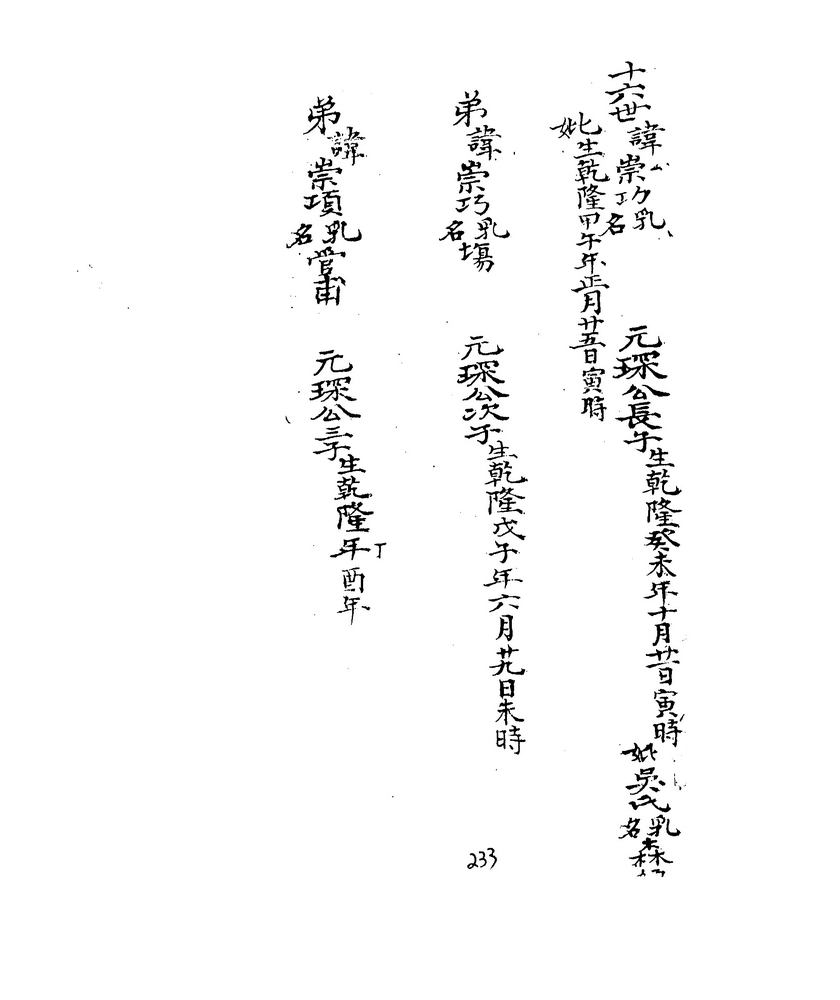 十六世諱崇功乳名 元琛公長子生乾隆癸未年十月廿一日寅時妣吳氏乳名森
妣生乾隆甲午年正月廿五日寅時
弟諱崇巧乳名塲 元琛公次子生乾隆戊子年六月廿九日未時
弟諱崇項乳名管甫 元琛公三子生乾隆年丁酉年
233